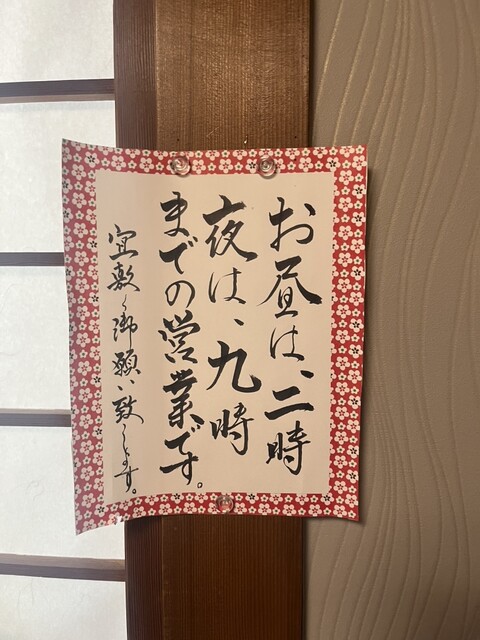 お昼は、二時
夜は、九時
までの営業です。
宜敷く御願い致します。